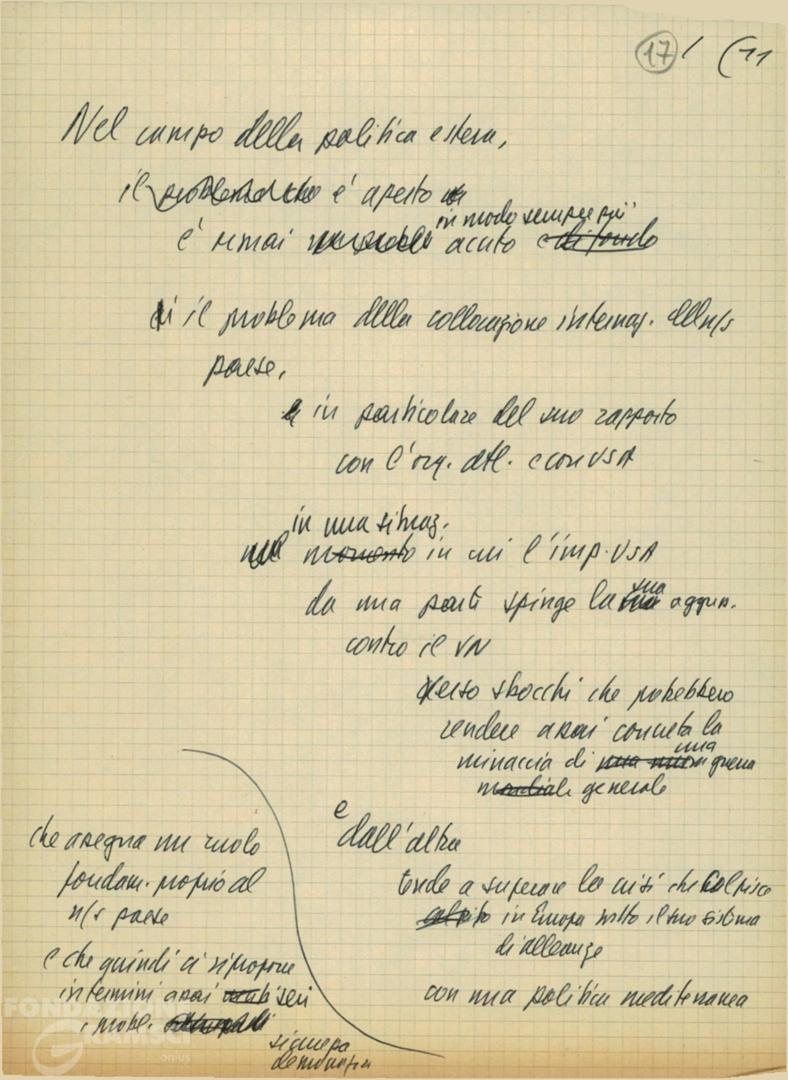 17 / (11
Nel campo della politica estera,
il problema che è aperto
in modo sempre più
è ormai acuto e di fondo
il problema della collocazione internaz. del n/s
paese,
in particolare del suo rapporto
con l'org. atl. e con USA
in una situaz.
nel momento in cui l'imp. USA
da una parte spinge la sua aggress.
contro il VN
verso sbocchi che potrebbero
rendere assai concreta la
minaccia di una guerra
mondiale generale
e dall'altra
tende a superare la crisi che colpisce
in Europa tutto il suo sistema
di alleanze
con una politica mediterranea
che assegna un ruolo
fondam. proprio al
n/s paese
e che quindi ci ripropone
in termini assai seri
i probl.
sicurezza
democrazia
FONDAZIONE
GRAMSCI
onlus